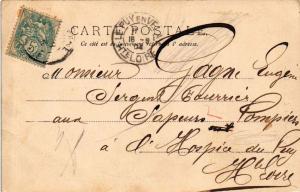 CARTE POSTALE
Ce côté est exclusivement réservé à l'adresse.
LE PUY EN VELAY
HTE LOIRE
Monsieur Gagne Eugène
Sergent Fourrier
aux Sapeurs Pompiers
à l'Hospice du Puy
Hte
Loire